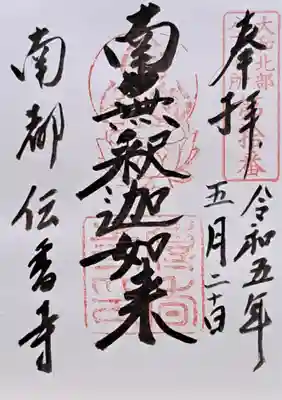 奉拝
令和五年
五月二十日
南無釈迦如来
南都伝香寺